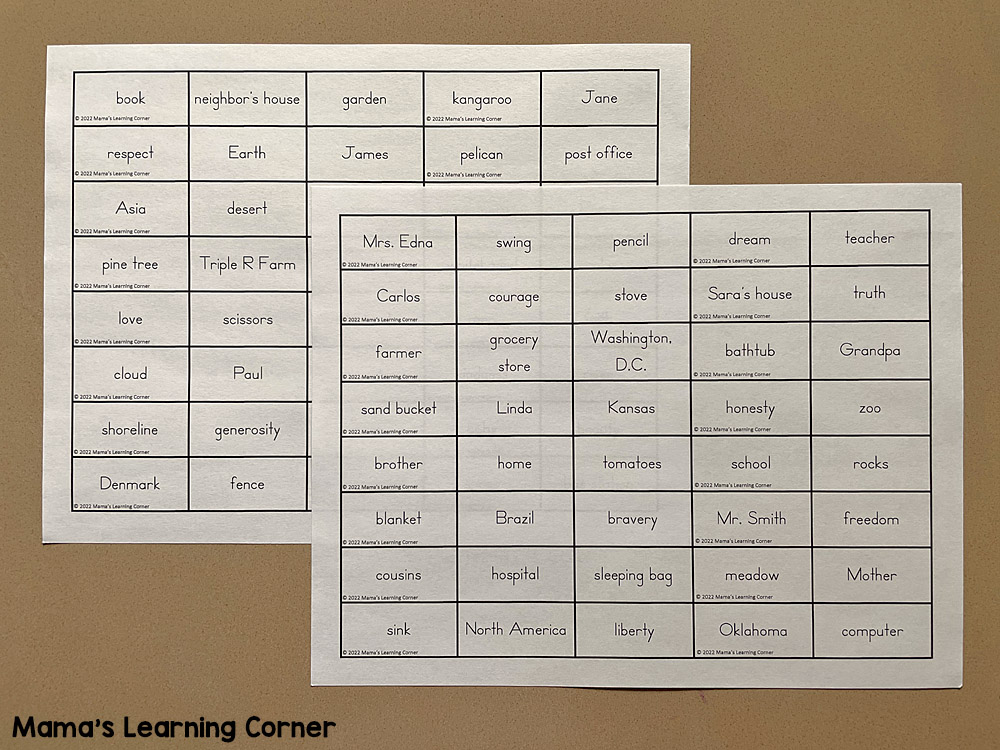 book neighbor's house garden kangaroo Jane
© 2022 Mama's Learning Corner © 2022 Mama's Learning Corner
respect Earth James pelican post office
© 2022 Mama's Learning Corner © 2022 Mama's Learning Corner
Asia desert
© 2022 Mama's Learning Corner
pine tree Triple R Farm
© 2022 Mama's Learning Corner
love scissors
© 2022 Mama's Learning Corner
cloud Paul
© 2022 Mama's Learning Corner
shoreline generosity
© 2022 Mama's Learning Corner
Denmark fence
© 2022 Mama's Learning Corner
Mrs. Edna swing pencil dream teacher
© 2022 Mama's Learning Corner © 2022 Mama's Learning Corner
Carlos courage stove Sara's house truth
© 2022 Mama's Learning Corner © 2022 Mama's Learning Corner
farmer grocery store Washington, D.C. bathtub Grandpa
© 2022 Mama's Learning Corner © 2022 Mama's Learning Corner
sand bucket Linda Kansas honesty zoo
© 2022 Mama's Learning Corner © 2022 Mama's Learning Corner
brother home tomatoes school rocks
© 2022 Mama's Learning Corner © 2022 Mama's Learning Corner
blanket Brazil bravery Mr. Smith freedom
© 2022 Mama's Learning Corner © 2022 Mama's Learning Corner
cousins hospital sleeping bag meadow Mother
© 2022 Mama's Learning Corner © 2022 Mama's Learning Corner
sink North America liberty Oklahoma computer
© 2022 Mama's Learning Corner © 2022 Mama's Learning Corner
Mama's Learning Corner